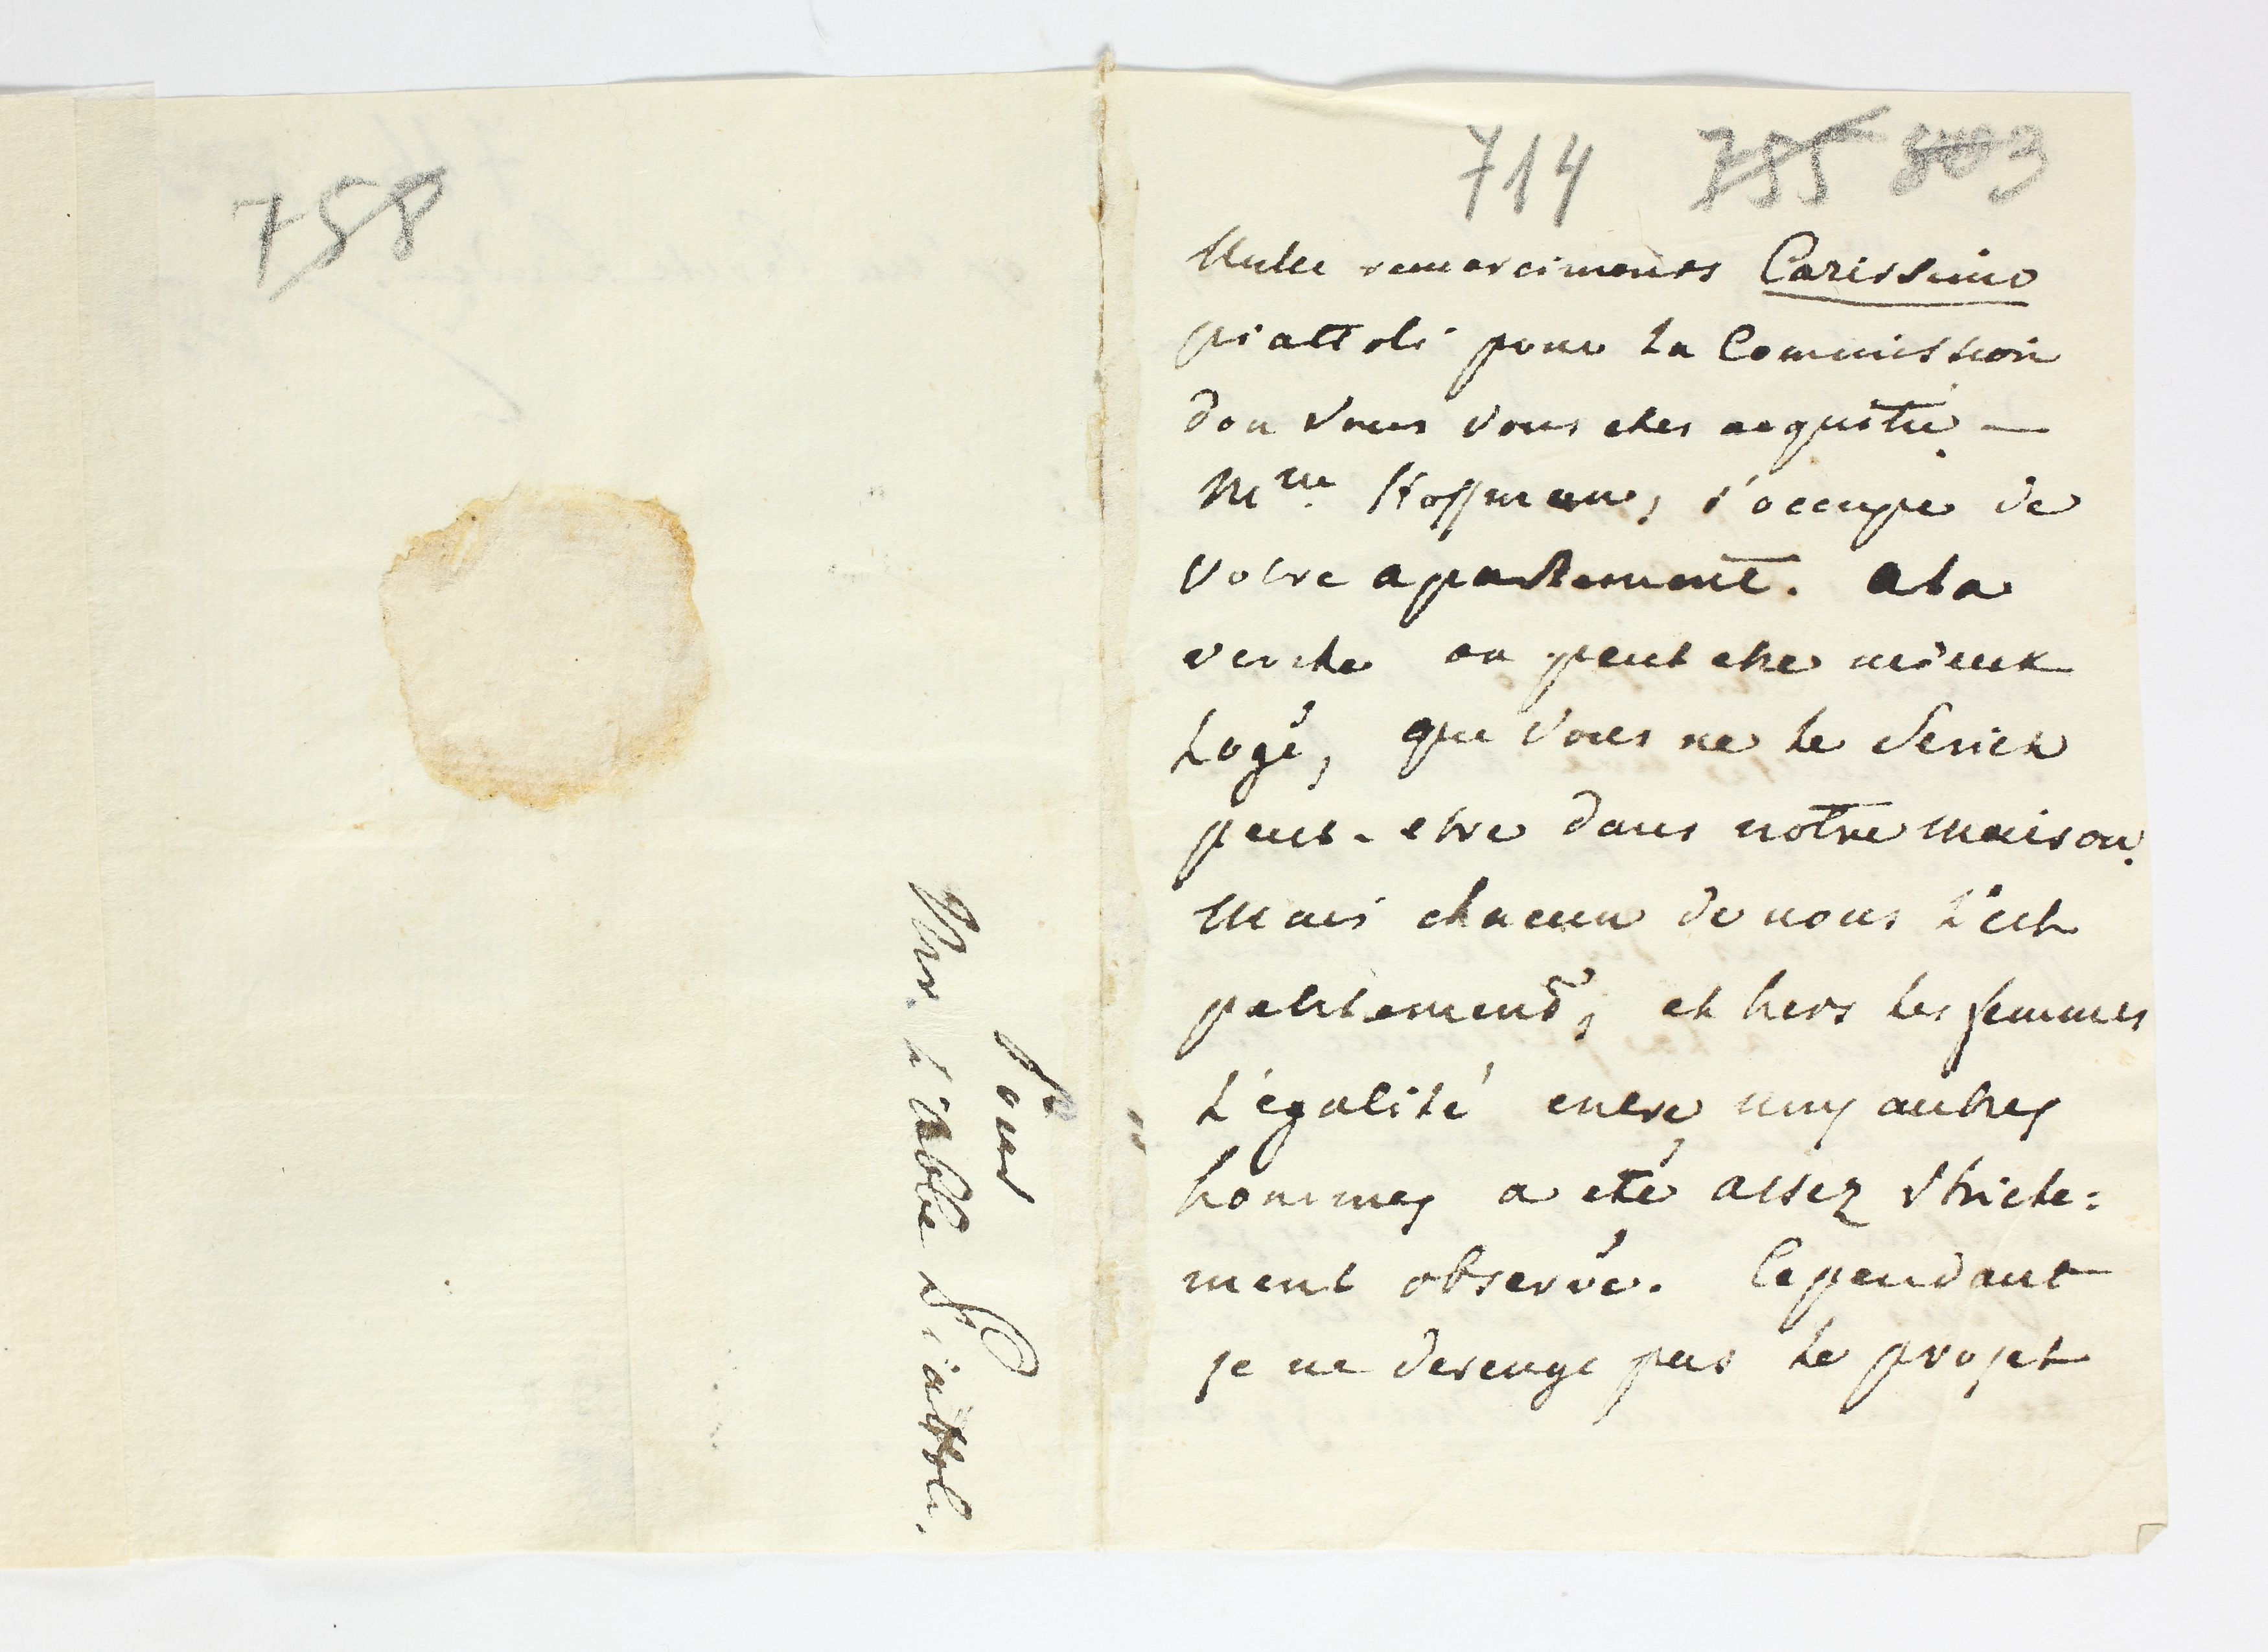 758
Pour
Mr. l'abbé Piattoli.
714 755 803
Mille remercimens Carissimo
piattoli pour la Commission
don vous vous etes acquitté —
Mme. Hoffman, s'occupe de
votre apartement. a la
verite on peut etre mieux
Logé, que vous ne le Seriez
peut-etre dans notre maison.
Mais chacun de nous l'est
petitement, et hors les femmes
l'égalité entre nuy autres
hommes a eté assez stricte:
ment observée. Cependant
je ne derenge pas le projet